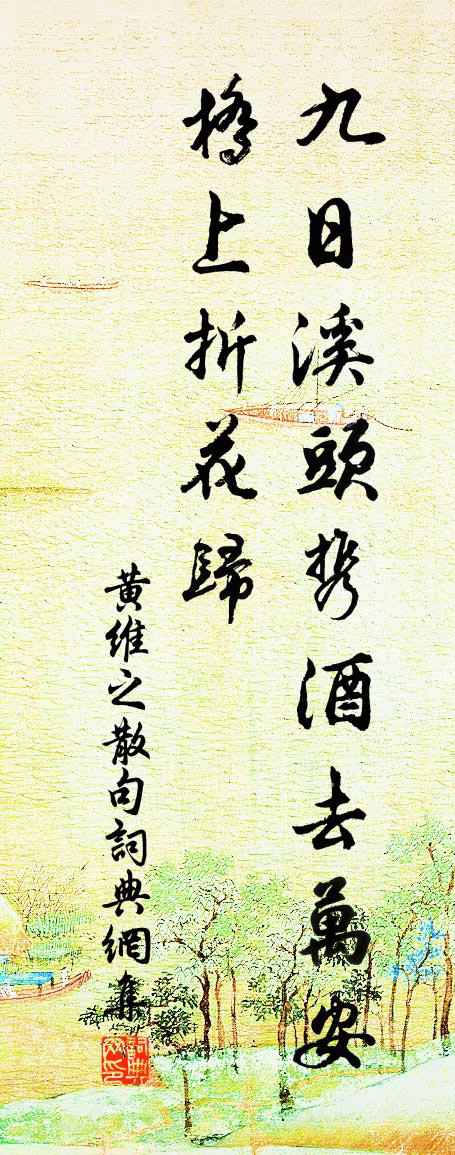 九日溪頭携酒去萬安
橋上折花歸
黃維之散句詞典網集